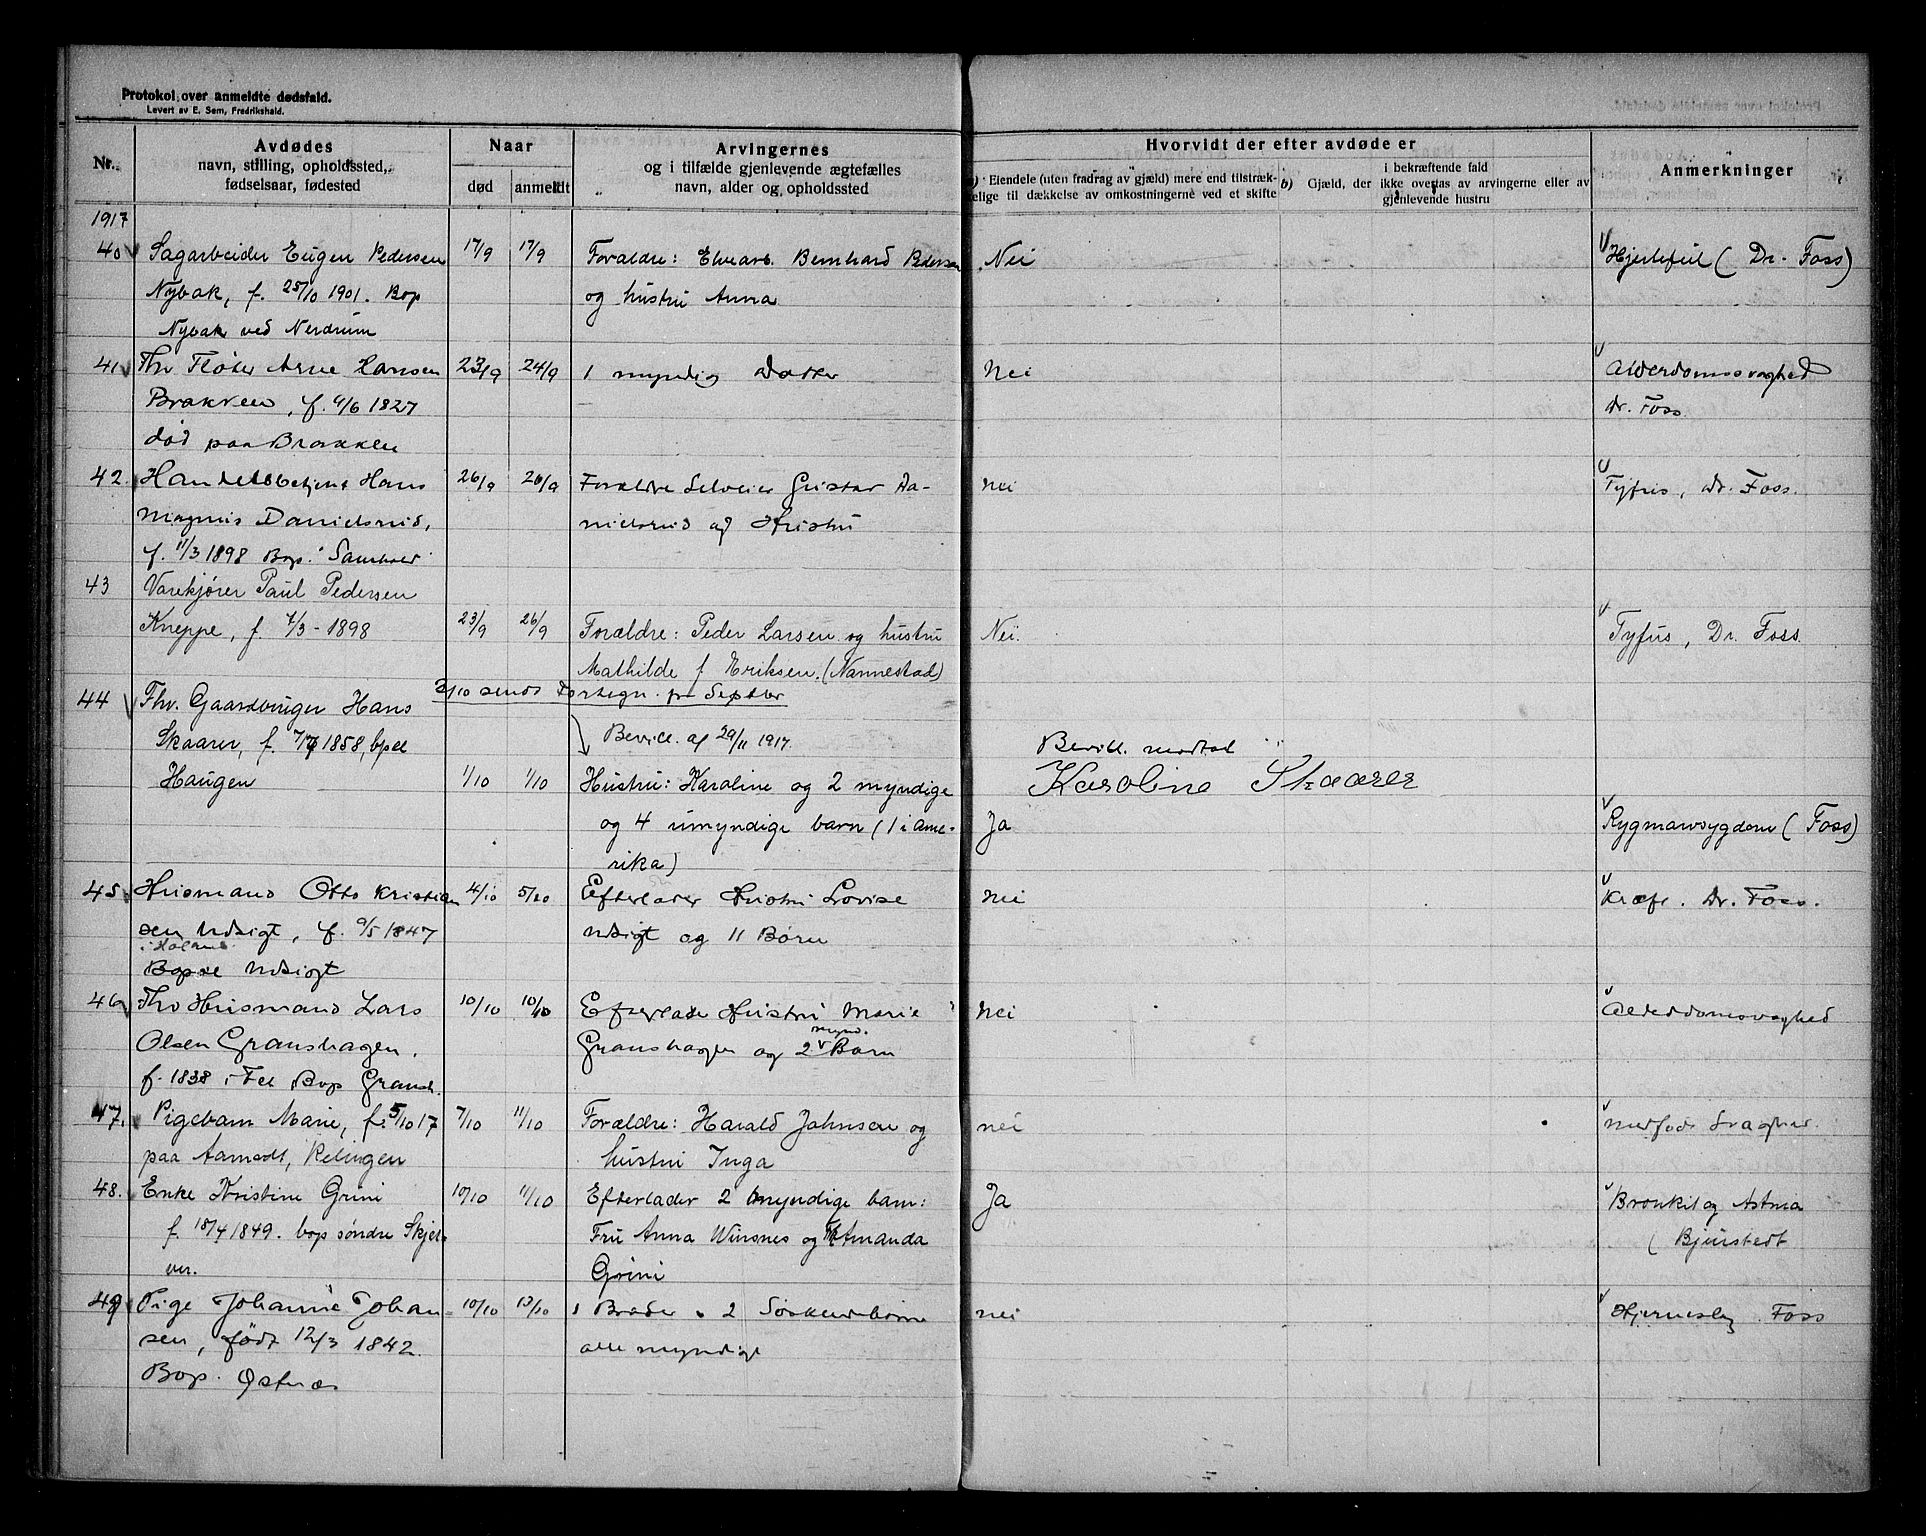 Protokol over anmeldte dødsfald.
Levert av E. Sem, Fredrikshald.
Nr.
Avdødes
navn, stilling, opholdssted,
fødselsaar, fødested
Naar
død
anmeldt
Arvingernes
og i tilfælde gjenlevende ægtefælles
navn, alder og opholdssted
Hvorvidt der efter avdøde er
a) Eiendele (uten fradrag av gjæld) mere end tilstræk-
kelige til dækkelse av omkostningerne ved et skifte
b) Gjæld, der
i bekræftende fald
ikke overtas av arvingerne eller av
gjenlevende hustru
Anmerkninger
1917
40 Sagarbeider Eugen Pedersen 17/9 17/9 Forældre: Elvearb. Bernhard Pedersen Nei Hjertefeil (Dr. Foss)
Nybak, f. 25/10 1901. Bop og hustru Anna
Nybak ved Nerdrum
41 Fhv Fløter Arne Hansen 23/9 24/9 1 myndig Datter Nei Alderdomssvaghed
Brakken, f. 4/6 1827 Dr. Foss
død paa Brakken
42. Handelsbetjent Hans 26/9 26/9 Forældre Selveier Gustav Da- Nei Tyfus, Dr. Foss.
Magnus Danielsrud, nielsrud og Hustru
f. 11/3 1898 Bop.
43 Varekjører Paul Pedersen
Kneppe, f 7/3 - 1898 23/9 26/9 Forældre: Peder Larsen og hustru Nei. Tyfus, Dr. Foss.
Mathilde f Eriksen. (Nannestad)
3/10 sendt Fortegn. for Septbr
44 Fhv. Gaardbruger Hans
Skaarer, f. 1858, bpel Bevill. af 29/11 1917. Bevill. modtat
Haugen 1/10 1/10 Hustru: Karoline og 2 myndige Karoline Skaarer
og 4 umyndige barn (1 i Ame- Ja Rygmarvsygdom (Foss)
rika)
45. Husmand Otto Kristian 4/10 5/10 Efterlader Hustru Lovise Nei Kræft. Dr. Foss.
sen Udsigt, f. 1847 Udsigt og 11 Børn
i Høland
Bopæl Udsigt
46 Fhv Husmand Lars 10/10 10/10 Efterlader Hustru Marie Nei Alderdomsvaghed
Olsen Granshagen. Granshagen og 2 mynd. Børn
f. 1838 i Fet Bop Gransh.
47. Pigebarn Marie, f. 5/10 17 7/10 11/10 Forældre: Harald Johnsen og nei medfødt Svaghed.
paa Aamodt, Rælingen hustru Inga
48. Enke Kristine Grini 10/10 11/10 Efterlader 2 myndige barn: Ja Bronkit og Astma
f. 18/4 1849. bop søndre Skjet- Fru Anna Winsnes og Amanda (Bjurstedt
ver. Grini
49 Pige Johanne Johan- 10/10 13/10 1 Broder 2 Søskendebørn nei Hjerneslag Foss
sen, født 12/3 1842. alle myndige
Bop. Østnæs